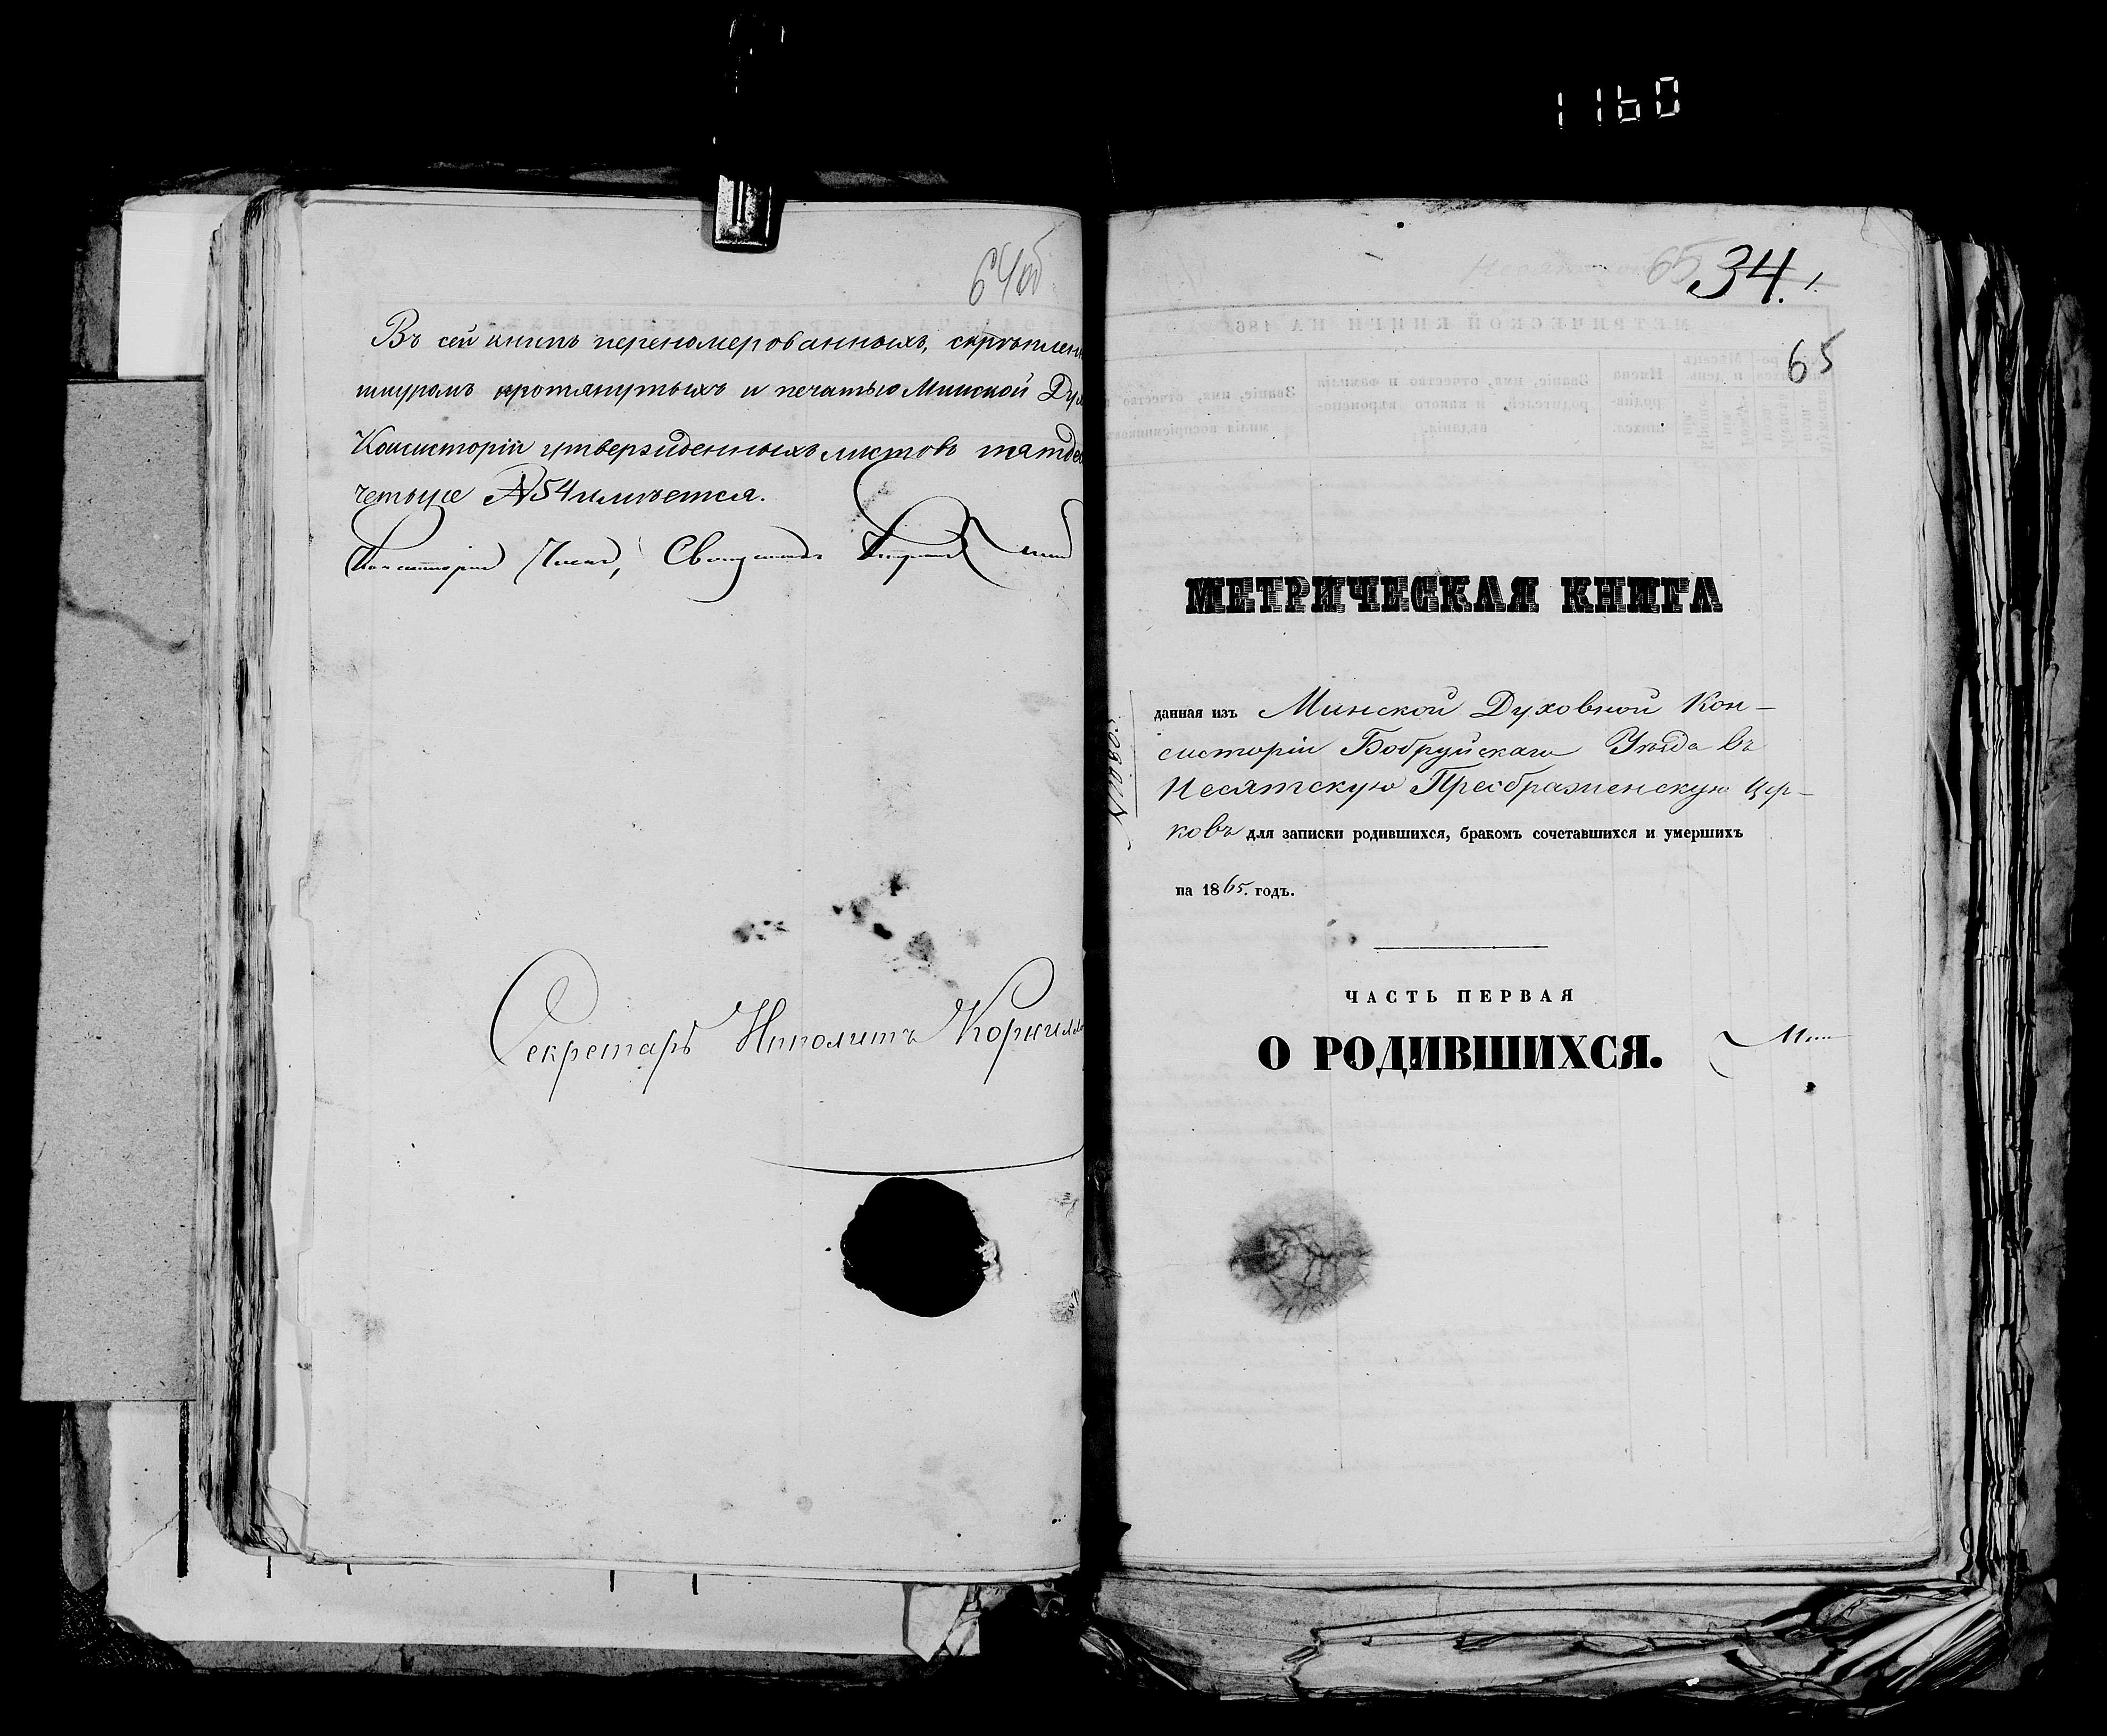 1160
64об
Въ сей книгѣ перенумерованныхъ, скрѣплен
шнуромъ протянутыхъ и печатью Минской Дух
Консисторіи утвержденныхъ листовъ пятьде
четыре №54 имѣется.
Консисторіи Членъ, Священникъ
Секретарь Ипполитъ Корнил
34.
65
65
МЕТРИЧЕСКАЯ КНИГА
данная изъ Минской Духовной Кон-
систоріи Бобруйскаго Уѣзда въ
Несятскую Преображенскую Цер-
ковь для записки родившихся, бракомъ сочетавшихся и умершихъ
на 1865. годъ.
ЧАСТЬ ПЕРВАЯ
О РОДИВШИХСЯ.